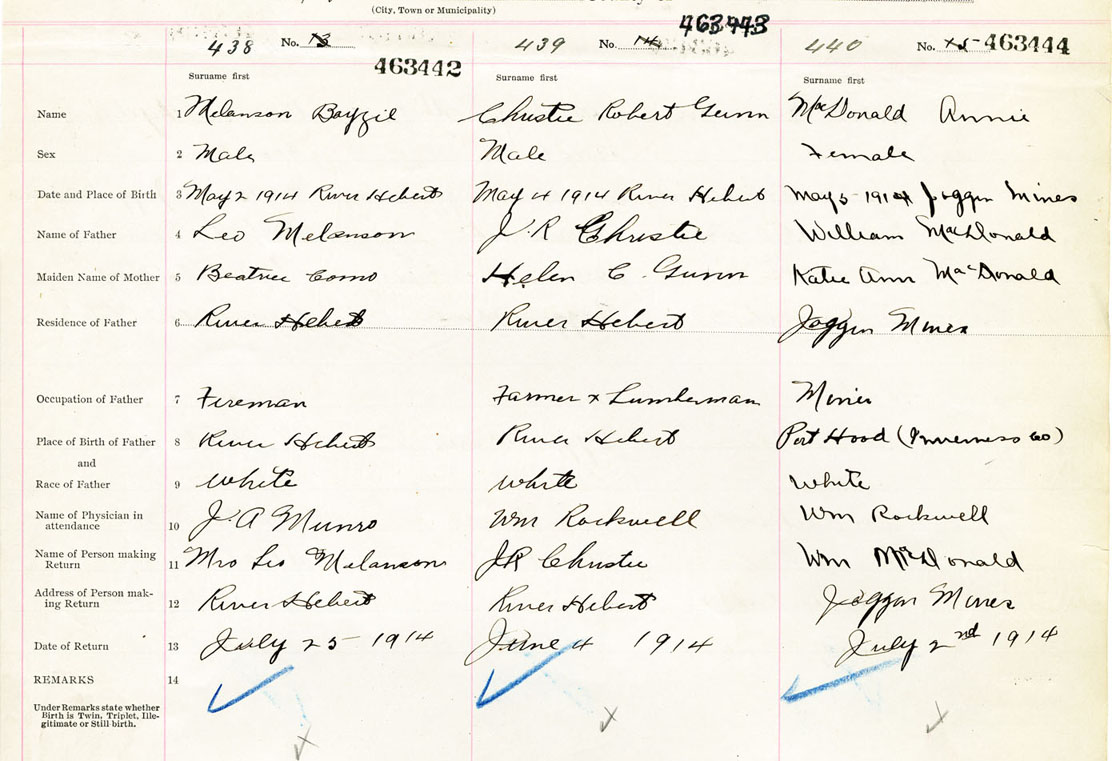 (City, Town or Municipality)
463443
438 No. 13 439 No. 14 440 No. 15 463444
463442
Surname first Surname first Surname first
Name 1 Melanson Bayzil Christie Robert Gunn MacDonald Annie
Sex 2 Male Male Female
Date and Place of Birth 3 May 2 1914 River Hebert May 4 1914 River Hebert May 5 1914 Joggin Mines
Name of Father 4 Leo Melanson J. R Christie William MacDonald
Maiden Name of Mother 5 Beatrice Como Helen C. Gunn Katie Ann MacDonald
Residence of Father 6 River Hebert River Hebert Joggin Mines
Occupation of Father 7 Fireman Farmer & Lumberman Miner
Place of Birth of Father 8 River Hebert River Hebert Port Hood (Inverness Co)
and
Race of Father 9 White White White
Name of Physician in
attendance 10 J. A Munro Wm Rockwell Wm Rockwell
Name of Person making
Return 11 Mrs Leo Melanson JR Christie Wm McDonald
Address of Person mak-
ing Return 12 River Hebert River Hebert Joggin Mines
Date of Return 13 July 25 1914 June 4 1914 July 2nd 1914
REMARKS 14
Under Remarks state whether
Birth is Twin, Triplet, Ille-
gitimate or Still-birth.